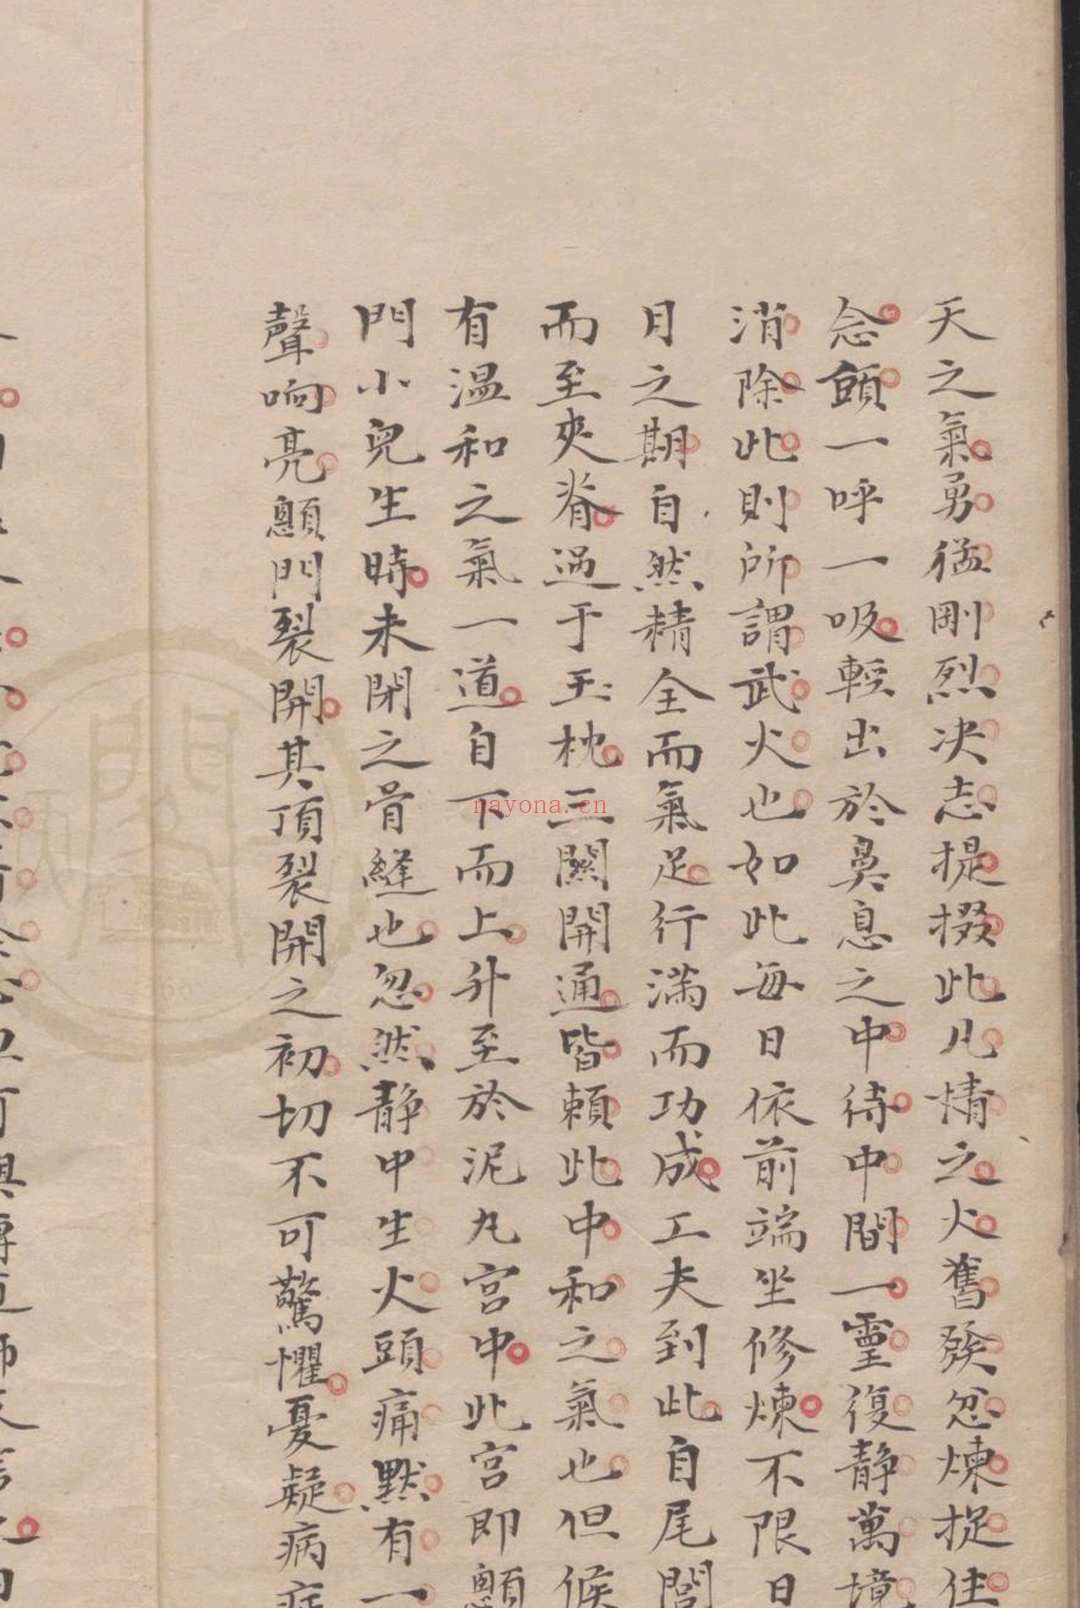 天之氣勇猛剛烈决志提掇此凡情之火奮發忿煉捉住
念頭一呼一吸輕出於鼻息之中待中間一靈復静萬境
消除此則所謂武火也如此每日依前端坐修煉不限日
月之期自然精全而氣足行滿而功成工夫到此自尾閭
而至夾脊過于玉枕三關開通皆賴此中和之氣也但候
有温和之氣一道自下而上升至於泥丸宫中此宫即顖
門小兒生時未閉之骨縫也忽然静中生火頭痛默有一
聲响亮顖門裂開其頂裂開之初切不可驚懼憂疑病症
nayona.cn